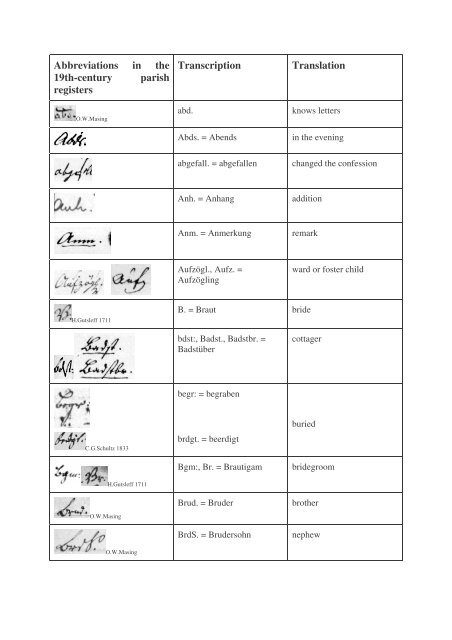 Abbreviations in the
19th-century parish
registers
Transcription
Translation
abd. O.W.Masing
abd.
knows letters
Abds.
Abds. = Abends
in the evening
abgefall
abgefall. = abgefallen
changed the confession
Anh.
Anh. = Anhang
addition
Anm.
Anm. = Anmerkung
remark
Aufzögl. Aufz
Aufzögl., Aufz. =
Aufzögling
ward or foster child
B. H.Gutsleff 1711
B. = Braut
bride
Badst.
bdst: Badstbr.
bdst:, Badst., Badstbr. =
Badstüber
cottager
begr:
begr: = begraben
buried
brdgt. C.G.Schultz 1833
brdgt. = beerdigt
Bgm: Br. H.Gutsleff 1711
Bgm:, Br. = Brautigam
bridegroom
Brud. O.W.Masing
Brud. = Bruder
brother
BrdS. O.W.Masing
BrdS. = Brudersohn
nephew